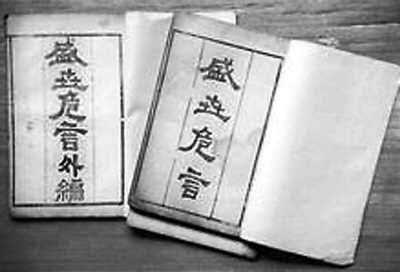 盛世危言外編
盛世危言